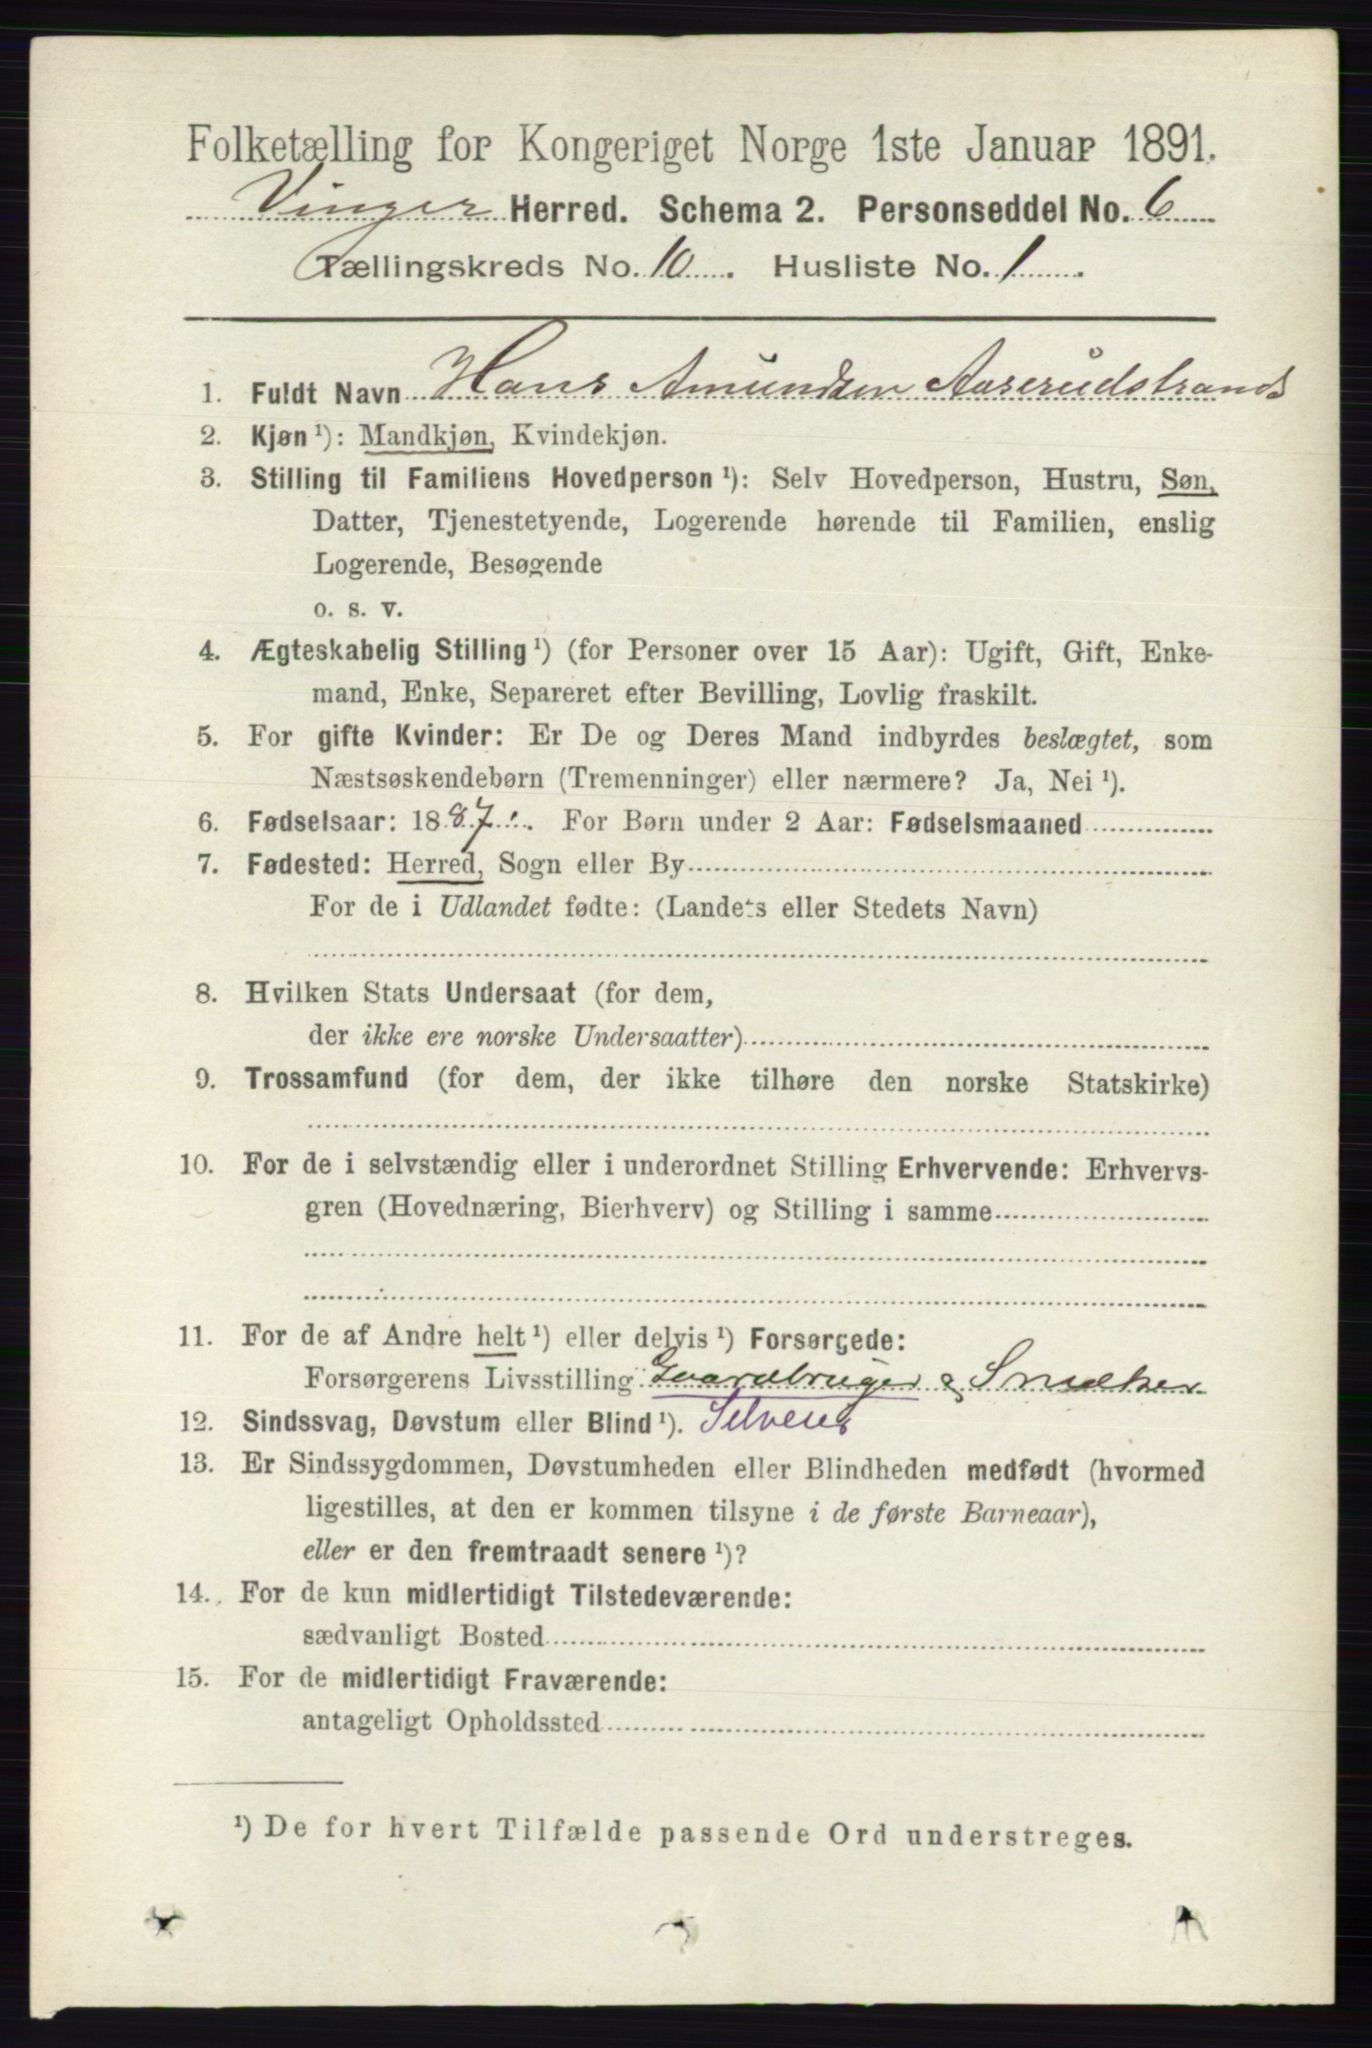 Folketælling for Kongeriget Norge 1ste Januar 1891.
Vinger Herred. Schema 2. Personseddel No. 6
Tællingskreds No. 10. Husliste No. 1.
1. Fuldt Navn Hans Amundsen Aaserudstrand
2. Kjøn ¹): Mandkjøn, Kvindekjøn.
3. Stilling til Familiens Hovedperson ¹): Selv Hovedperson, Hustru, Søn,
Datter, Tjenestetyende, Logerende hørende til Familien, enslig
Logerende, Besøgende
o. s. v.
4. Ægteskabelig Stilling ¹) (for Personer over 15 Aar): Ugift, Gift, Enke-
mand, Enke, Separeret efter Bevilling, Lovlig fraskilt.
5. For gifte Kvinder: Er De og Deres Mand indbyrdes beslægtet, som
Næstsøskendebørn (Tremenninger) eller nærmere? Ja, Nei ¹).
6. Fødselsaar: 1887. For Børn under 2 Aar: Fødselsmaaned
7. Fødested: Herred, Sogn eller By
For de i Udlandet fødte: (Landets eller Stedets Navn)
8. Hvilken Stats Undersaat (for dem,
der ikke ere norske Undersaatter)
9. Trossamfund (for dem, der ikke tilhøre den norske Statskirke)
10. For de i selvstændig eller i underordnet Stilling Erhvervende: Erhvervs-
gren (Hovednæring, Bierhverv) og Stilling i samme
11. For de af Andre helt ¹) eller delvis ¹) Forsørgede:
Forsørgerens Livsstilling Gaardbruger & Snedker
12. Sindssvag, Døvstum eller Blind ¹). Selveier
13. Er Sindssygdommen, Døvstumheden eller Blindheden medfødt (hvormed
ligestilles, at den er kommen tilsyne i de første Barneaar),
eller er den fremtraadt senere ¹)?
14. For de kun midlertidigt Tilstedeværende:
sædvanligt Bosted
15. For de midlertidigt Fraværende:
antageligt Opholdssted
¹) De for hvert Tilfælde passende Ord understreges.